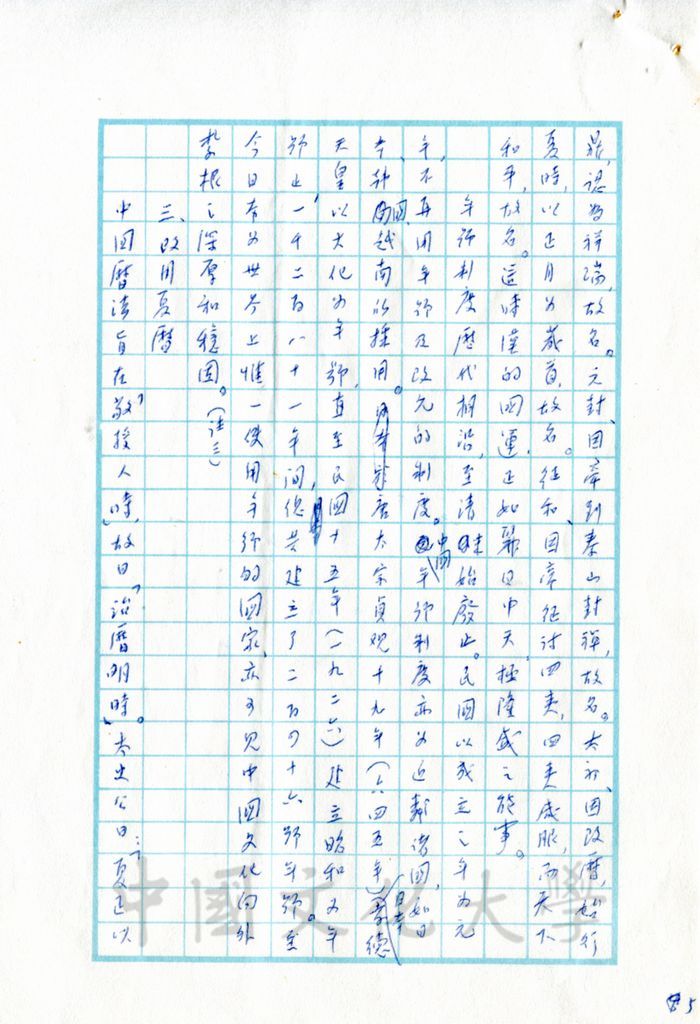 鼎，認為祥瑞，故名。元封、因帝到泰山封禪，故名。太初、因改曆，始行
夏時，以正月為歲首，故名。征和、因帝征討四夷，四夷咸服，而天下
和平，故名。這時漢的國運，正如麗日中天，極隆盛之能事。
年號制度歷代相沿，至清末始廢止。民國以成立之年為元
年，不再用年號及改元的制度。中國年號制度亦為近鄰諸國，如日
本、韓國、越南所採用。日本於唐太宗貞觀十九年（六四五年）日本孝德
天皇，以大化為年號，直至民國十五年（一九二六）建立昭和為年
號止，一千二百八十一年間，總共建立了二百四十六號年號。至
今日有為世界上惟一使用年號的國家，亦可見中國文化向外
紮根之深厚和穩固。（註三）
三、改用夏曆
中國曆法旨在「敬授人時」，故曰「治曆明時」。太史公曰：「夏正以
中國文化大學
5